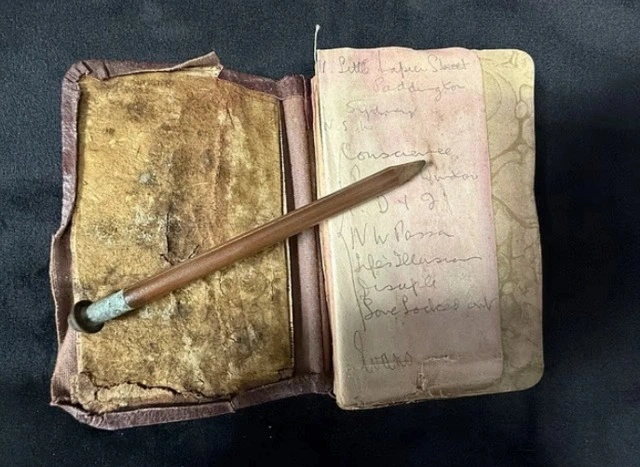 Little Napier Street
Paddington
Sydney
N.S.W
Conscience
D & J
W W Passa
Life's Illusion
Disciple
Love Locked out